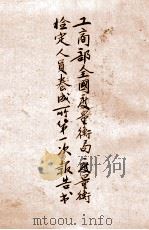 工商部全國度量衡局度量衡
檢定人員養成所第一次報告书